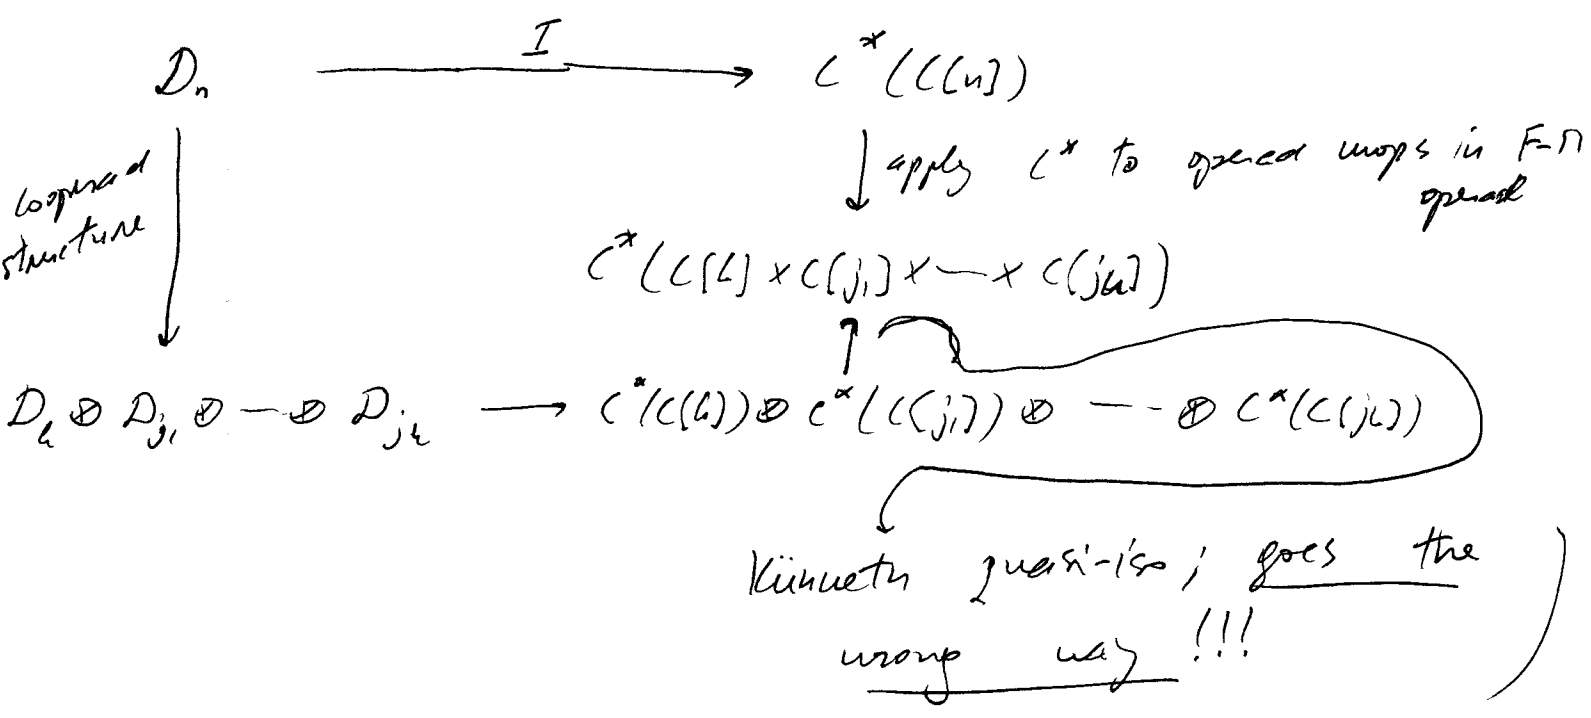 I
D_n → C^*(C[n])
cooperad structure
↓ apply C^* to operad maps in F-M operad
C^*(C[k] × C[j_1] × — × C[j_k])
D_k ⊗ D_{j_1} ⊗ — ⊗ D_{j_k} → C^*(C[k]) ⊗ C^*(C[j_1]) ⊗ — - ⊗ C^*(C[j_k])
Künneth quasi-iso; goes the
wrong way !!! )